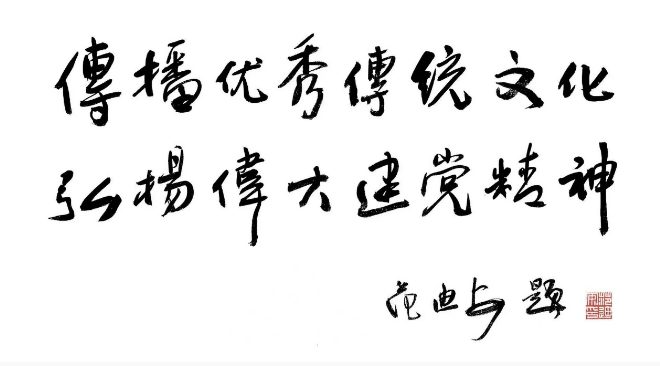 傳播优秀傳统文化
弘揚偉大建党精神
范迪安題